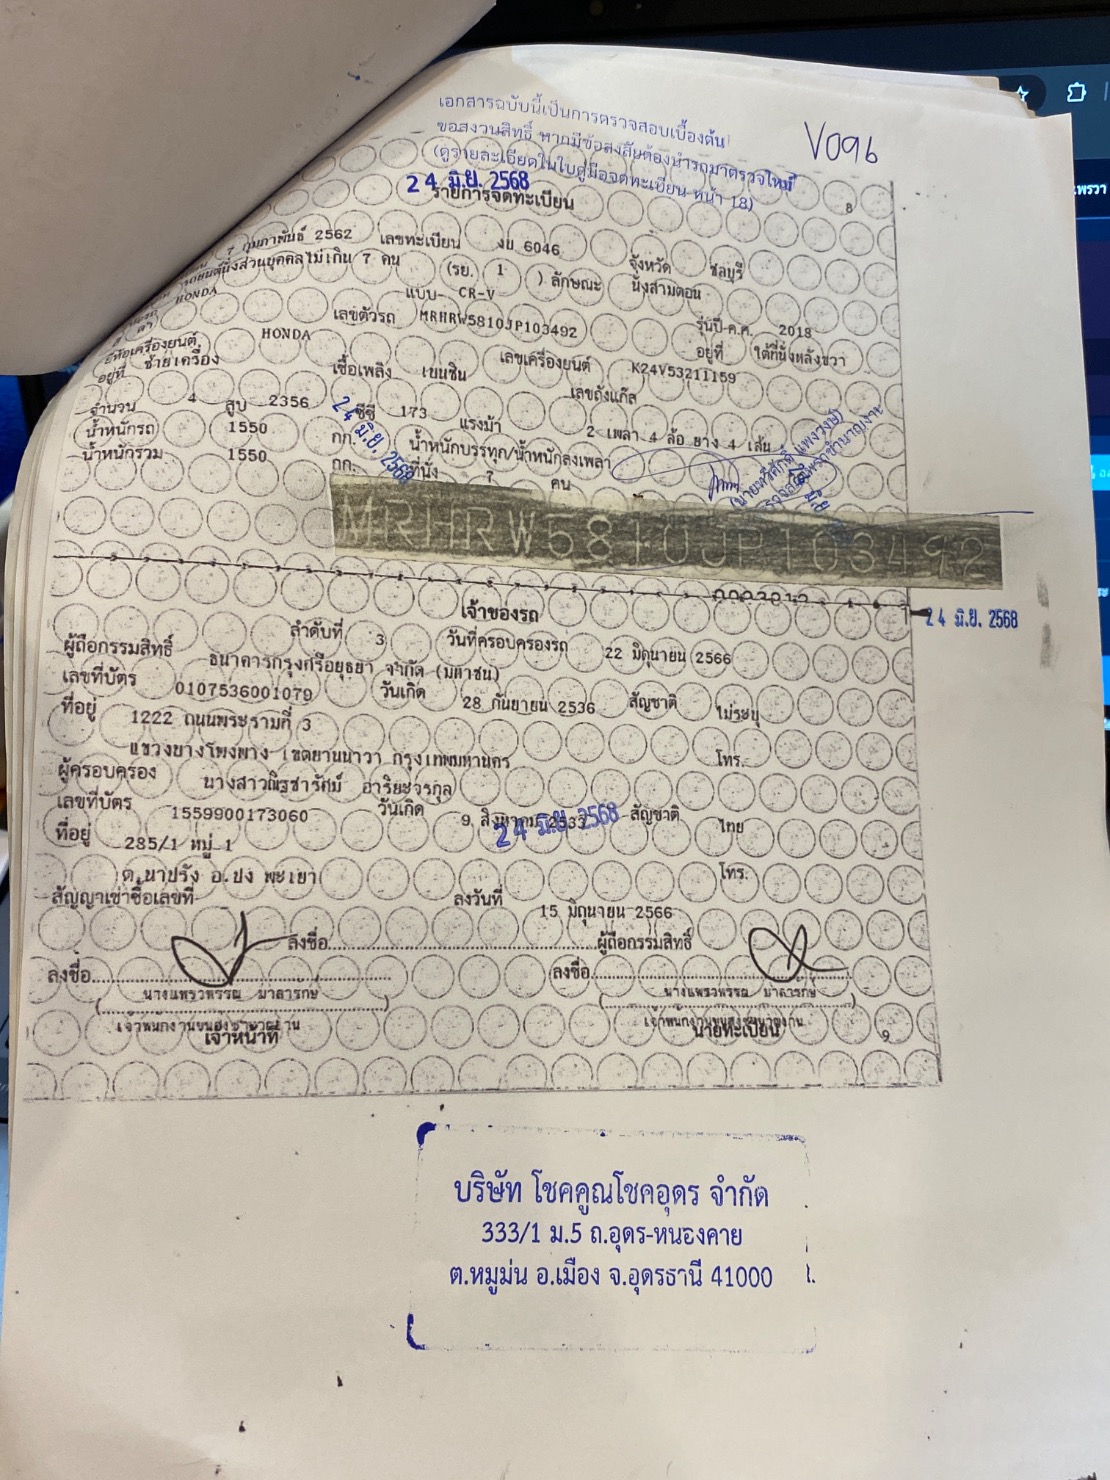 เอกสารฉบับนี้เป็นการตรวจสอบเบื้องต้น
ขอสงวนสิทธิ์ หากมีข้อสงสัยต้องนำรถมาตรวจใหม่
(ดูรายละเอียดในใบคู่มือจดทะเบียน หน้า 18)
V096
พรวา
24 มิ.ย. 2568
รายการจดทะเบียน
8
7 กุมภาพันธ์ 2562 เลขทะเบียน งบ 6046 จังหวัด ชลบุรี
นั่งส่วนบุคคลไม่เกิน 7 คน (รย. 1 ) ลักษณะ นั่งสามตอน
HONDA แบบ CR-V รุ่นปี ค.ศ. 2018
เลขตัวรถ MRHRW5810JP103492 อยู่ที่ ใต้ที่นั่งหลังขวา
ยี่ห้อเครื่องยนต์ HONDA เลขเครื่องยนต์ K24V53211159
อยู่ที่ ซ้ายเครื่อง เชื้อเพลิง เบนซิน เลขถังแก๊ส
จำนวน 4 สูบ 2356 ซีซี 173 แรงม้า 2 เพลา 4 ล้อ ยาง 4 เส้น
น้ำหนักรถ 1550 กก. น้ำหนักบรรทุก/น้ำหนักลงเพลา
น้ำหนักรวม 1550 กก. ที่นั่ง 7 คน
24 มิ.ย. 2568
MRHRW5810JP103492
24 มิ.ย. 2568
เจ้าของรถ
ลำดับที่ 3 วันที่ครอบครองรถ 22 มิถุนายน 2566
ผู้ถือกรรมสิทธิ์ ธนาคารกรุงศรีอยุธยา จำกัด (มหาชน)
เลขที่บัตร 0107536001079 วันเกิด 28 กันยายน 2536 สัญชาติ ไม่ระบุ
ที่อยู่ 1222 ถนนพระรามที่ 3
แขวงบางโพงพาง เขตยานนาวา กรุงเทพมหานคร โทร.
ผู้ครอบครอง นางสาวณิรชารัศม์ อาริยะจรกุล
เลขที่บัตร 1559900173060 วันเกิด 9 สิงหาคม 2533 สัญชาติ ไทย
24 มิ.ย. 2568
ที่อยู่ 285/1 หมู่ 1
ต.นาปรัง อ.ปง พะเยา โทร.
สัญญาเช่าซื้อเลขที่ ลงวันที่ 15 มิถุนายน 2566
ลงชื่อ ผู้ถือกรรมสิทธิ์
ลงชื่อ ลงชื่อ
นางแพรวพรรณ มาลารักษ์ นางแพรวพรรณ มาลารักษ์
เจ้าพนักงานขนส่งชำนาญงาน เจ้าพนักงานขนส่งชำนาญงาน
เจ้าหน้าที่ นายทะเบียน 9
บริษัท โชคคูณโชคอุดร จำกัด
333/1 ม.5 ถ.อุดร-หนองคาย
ต.หมูม่น อ.เมือง จ.อุดรธานี 41000